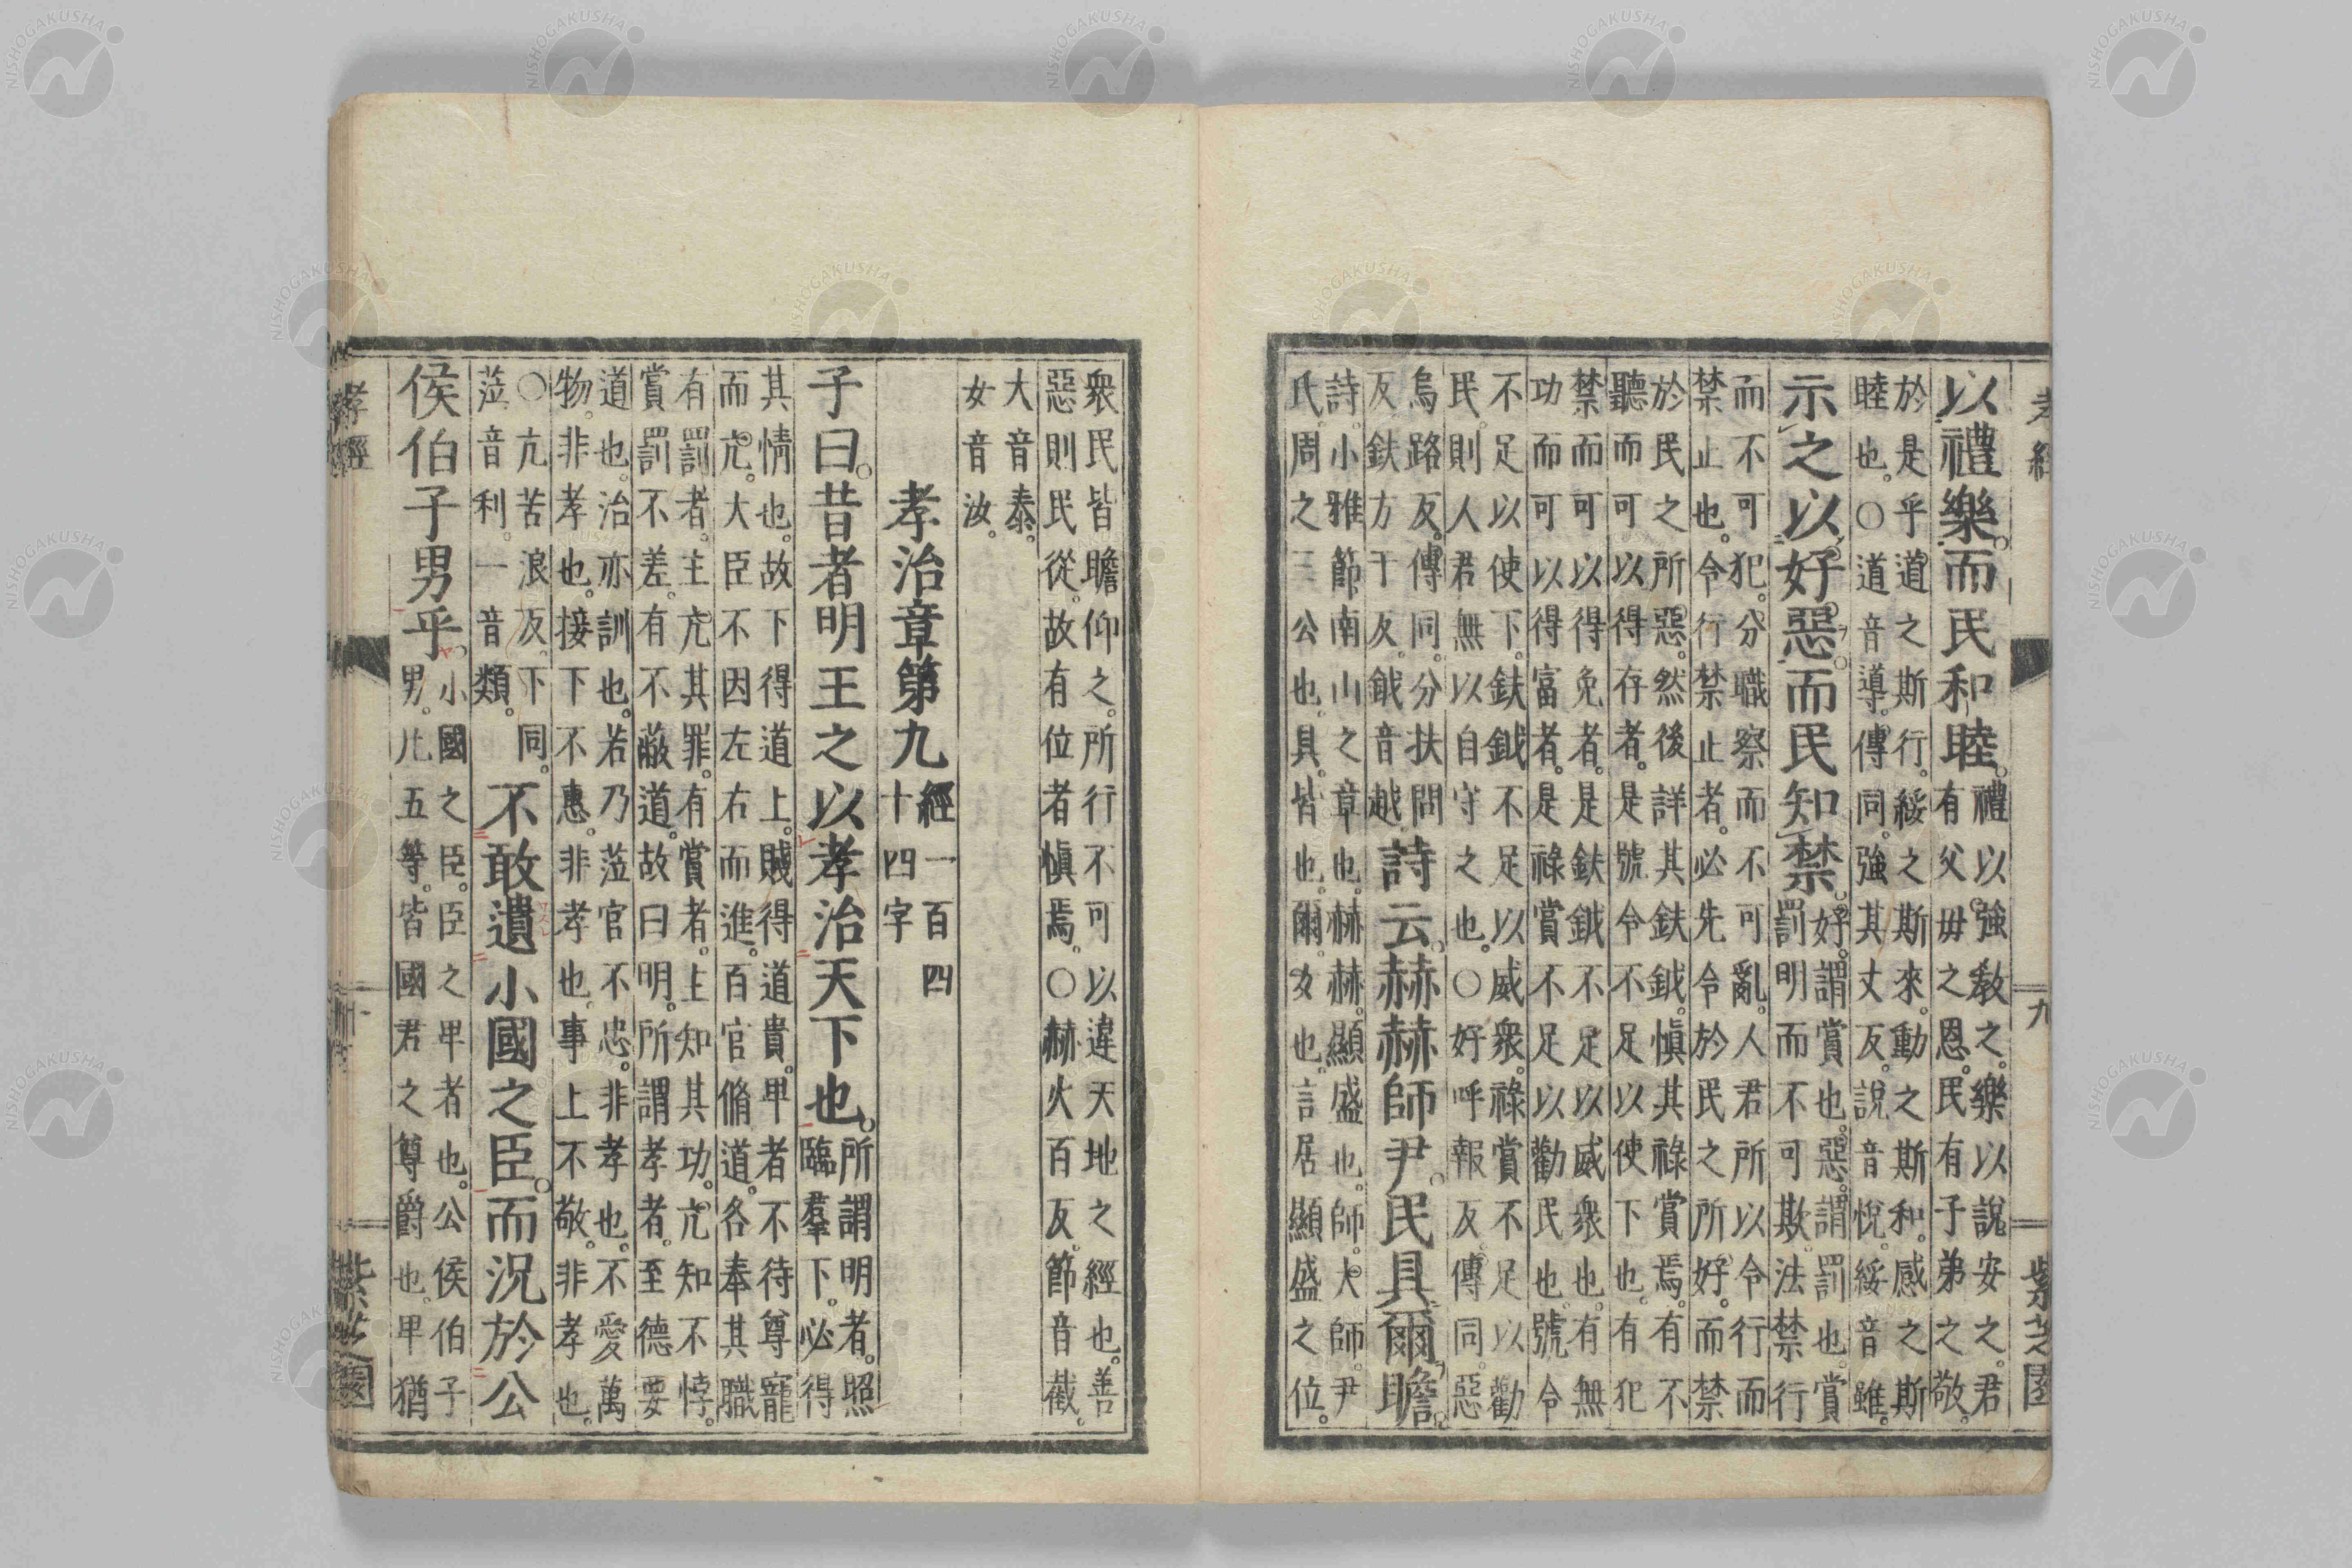 孝經 九 紫芝園
以禮樂。而民和睦。禮以強教之。樂以說安之。君
有父母之恩。民有子弟之敬。
於是乎道之斯行。綏之斯來。動之斯和。感之斯
睦也。○道音導。傳同。強其丈反。說音悅。綏音雖。
示之以好惡。而民知禁。好。謂賞也。惡。謂罰也。賞
罰明而不可欺。法禁行
而不可犯。分職察而不可亂。人君所以令行而
禁止也。令行禁止者。必先令於民之所好。而禁
於民之所惡。然後詳其鈇鉞。慎其祿賞焉。有不
聽而可以得存者。是號令不足以使下也。有犯
禁而可以得免者。是鈇鉞不足以威衆也。有無
功而可以得富者。是祿賞不足以勸民也。號令
不足以使下。鈇鉞不足以威衆。祿賞不足以勸
民。則人君無以自守之也。○好呼報反。傳同。惡
烏路反。傳同。分扶問
反。鈇方于反。鉞音越。
詩云。赫赫師尹。民具爾瞻。
詩。小雅節南山之章也。赫赫。顯盛也。師。大師。尹
氏。周之三公也。具。皆也。爾。女也。言居顯盛之位。
衆民皆瞻仰之。所行不可以違天地之經也。善
惡則民從。故有位者慎焉。○赫火百反。節音截。
大音泰。
女音汝。
孝治章第九 經一百四
十四字
子曰。昔者明王之以孝治天下也。所謂明者。照
臨羣下。必得
其情也。故下得道上。賤得道貴。卑者不待尊寵
而亢。大臣不因左右而進。百官脩道。各奉其職
有罰者。主亢其罪。有賞者。主知其功。亢知不悖。
賞罰不差。有不蔽道。故曰明。所謂孝者。至德要
道也。治亦訓也。若乃涖官不忠。非孝也。不愛萬
物。非孝也。接下不惠。非孝也。事上不敬。非孝也。
○亢苦浪反。下同。
涖音利。一音類。
不敢遺小國之臣。而況於公
侯伯子男乎。小國之臣。臣之卑者也。公侯伯子
男。凡五等。皆國君之尊爵也。卑猶
孝經 紫芝園